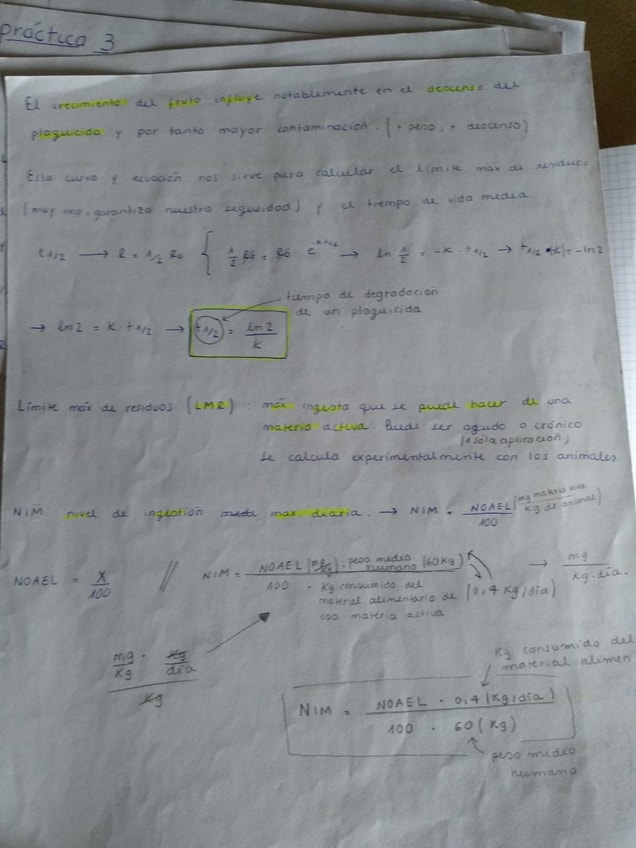 práctica 3
El crecimiento del fruto influye notablemente en el descenso del
plaguicida y por tanto mayor contaminación. (+ peso, + descenso)
Esta curva y ecuación nos sirve para calcular el límite max de residuos
(muy imp, garantiza nuestra seguridad) y el tiempo de vida media
t1/2 → R = 1/2 R0 { 1/2 R0 = R0 · e^-k·t1/2 → ln 1/2 = -k · t1/2 → t1/2 (k) = -ln2
tiempo de degradación
de un plaguicida
→ ln2 = k · t1/2 → t1/2 = ln2 / k
Límite máx de residuos (LMR) : máx ingesta que se puede hacer de una
materia activa. Puede ser agudo o crónico.
(1 sola aplicación)
Se calcula experimentalmente con los animales
NIM nivel de ingestión max diaria. → NIM = NOAEL / 100 (mg materia / kg de animal)
NOAEL = X / 100 // NIM = NOAEL (mg/kg) · peso medio humano (60 kg) / 100 · Kg consumido del material alimentario de esa materia activa (0,4 Kg/día) → mg / kg. día.
mg / kg · kg / día / kg
Kg consumido del
material alimen
NIM = NOAEL · 0,4 (kg/día) / 100 · 60 (kg)
peso medio
humano